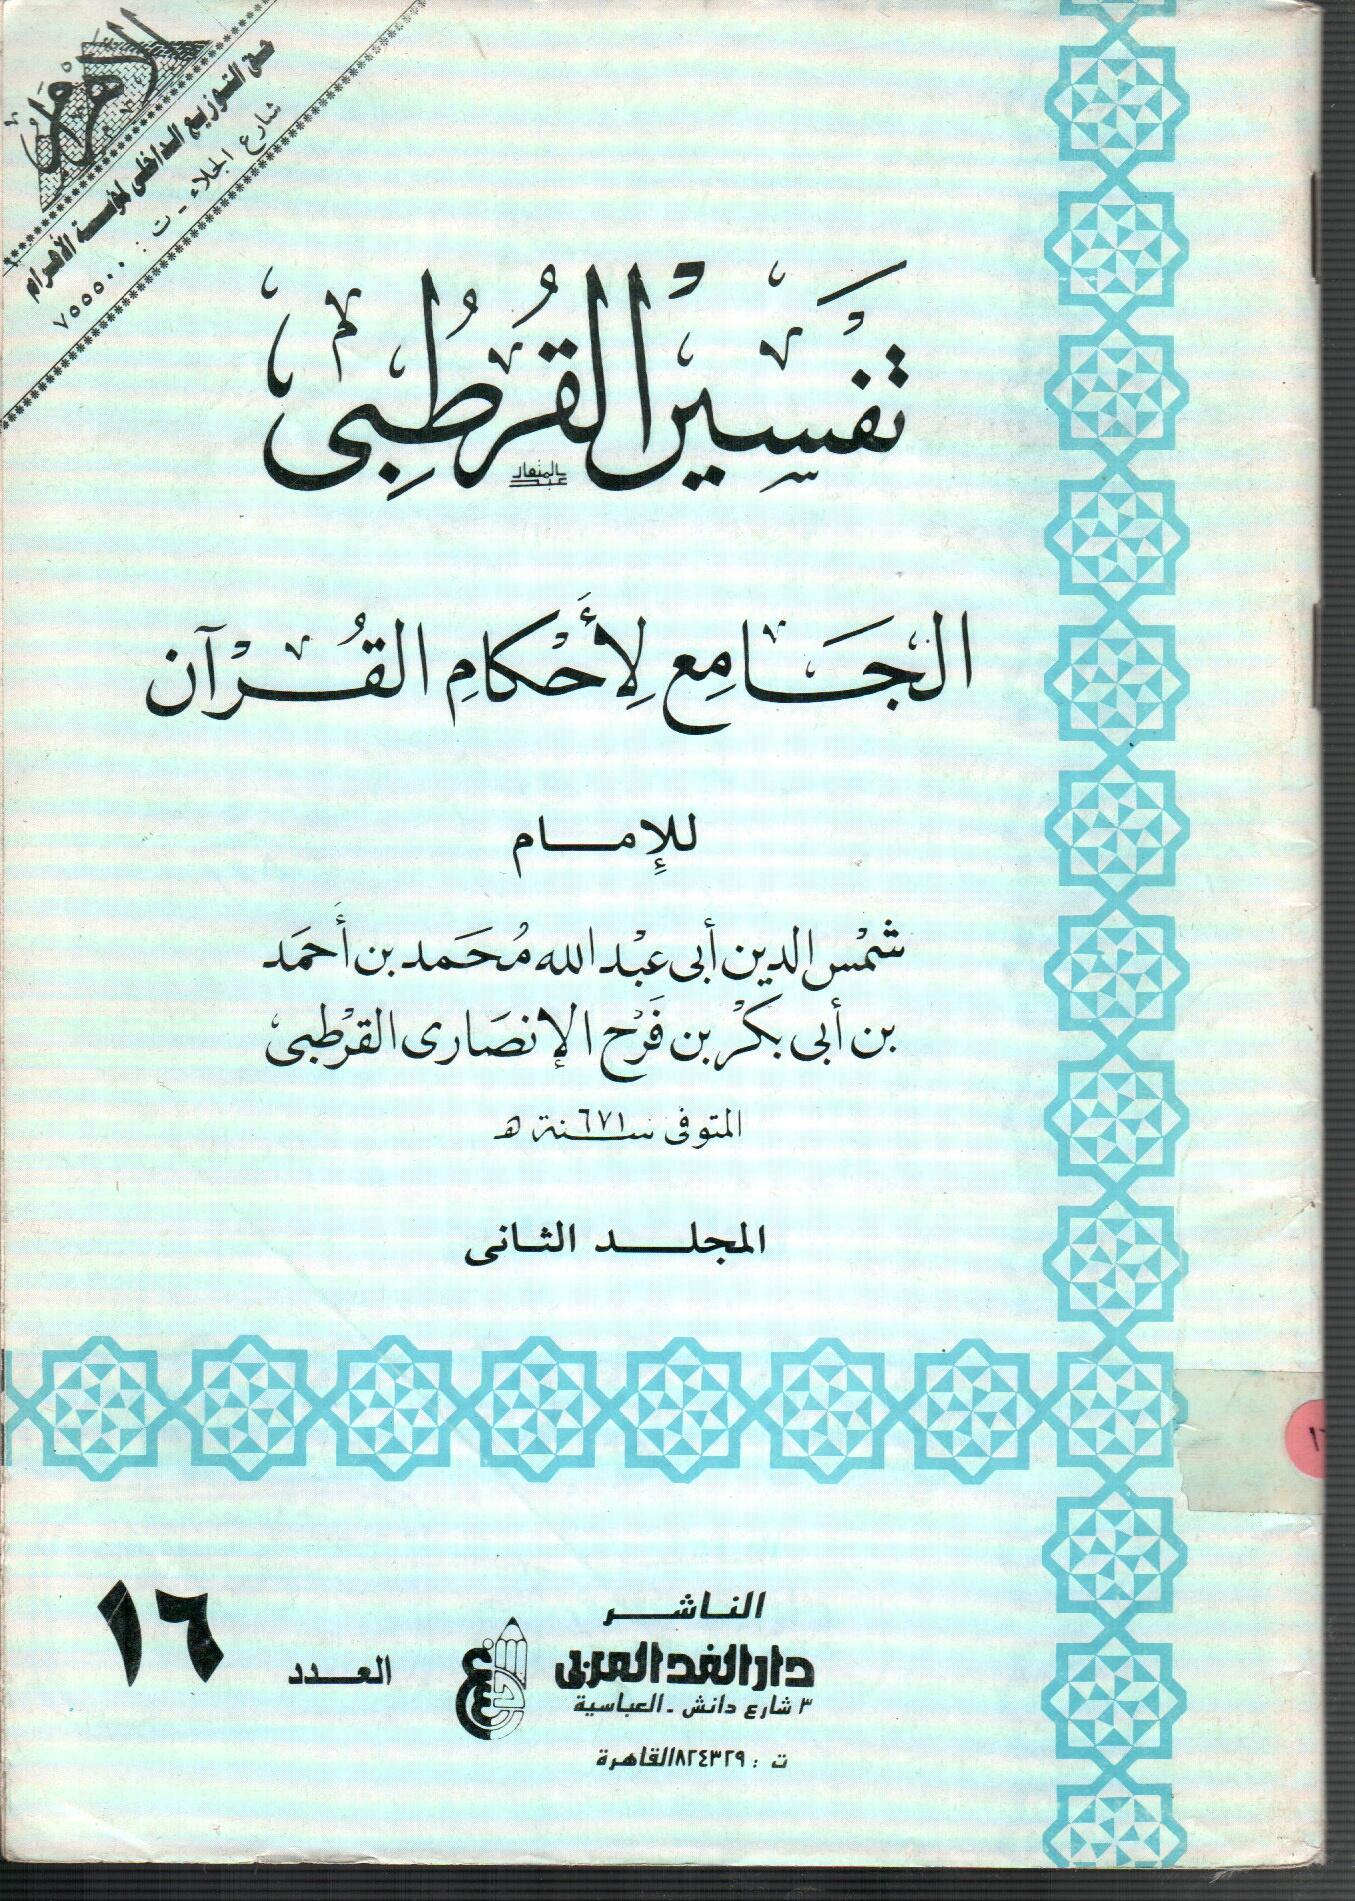 الأهرام
حق التوزيع الداخلى لمؤسسة الأهرام
شارع الجلاء - ت : ٧٥٥٥٠٠
تفسير القرطبى
الجامع لأحكام القرآن
للإمام
شمس الدين أبى عبد الله محمد بن أحمد
بن أبى بكر بن فرح الإنصارى القرطبى
المتوفى سنة ٦٧١ هـ
المجلد الثانى
الناشر
دار الغد العربى
٣ شارع دانش - العباسية
ت : ٨٢٤٣٢٩ القاهرة
العدد
١٦